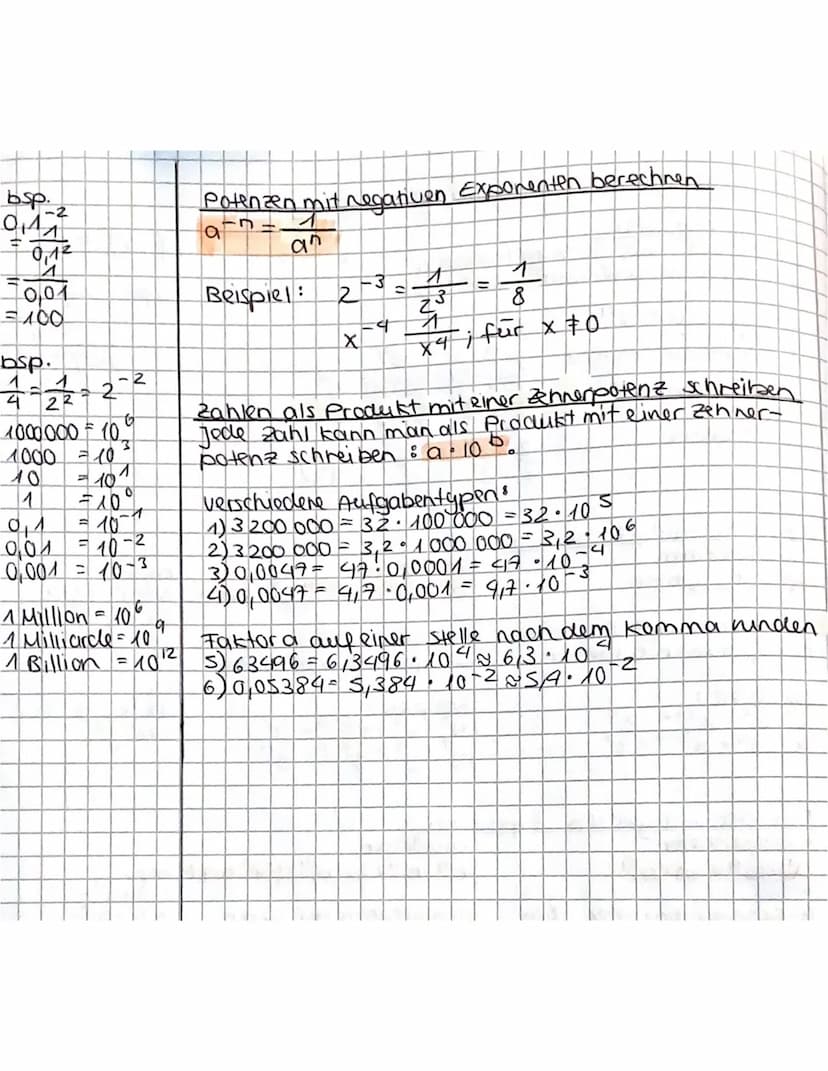 bsp.
0,1⁻²
= 1/0,1²
= 1/0,01
= 100
bsp.
1/4 = 1/2² = 2⁻²
1000000 = 10⁶
1000 = 10³
10 = 10¹
1 = 10⁰
0,1 = 10⁻¹
0,01 = 10⁻²
0,001 = 10⁻³
1 Million = 10⁶
1 Milliarde = 10⁹
1 Billion = 10¹²
Potenzen mit negativen Exponenten berechnen
a⁻ⁿ = 1/aⁿ
Beispiel: 2⁻³ = 1/2³ = 1/8
x⁻⁴ 1/x⁴ ; für x ≠ 0
Zahlen als Produkt mit einer Zehnerpotenz schreiben
Jede Zahl kann man als Produkt mit einer Zehner-
potenz schreiben : a · 10ᵇ.
Verschiedene Aufgabentypen:
1) 3 200 000 = 32 · 100 000 = 32 · 10⁵
2) 3 200 000 = 3,2 · 1 000 000 = 3,2 · 10⁶
3) 0,0047 = 47 · 0,0001 = 47 · 10⁻⁴
4) 0,0047 = 4,7 · 0,001 = 4,7 · 10⁻³
Faktor a auf einer Stelle nach dem Komma runden
5) 63496 = 6,3496 · 10⁴ ≈ 6,3 · 10⁴
6) 0,05384 = 5,384 · 10⁻² ≈ 5,4 · 10⁻²